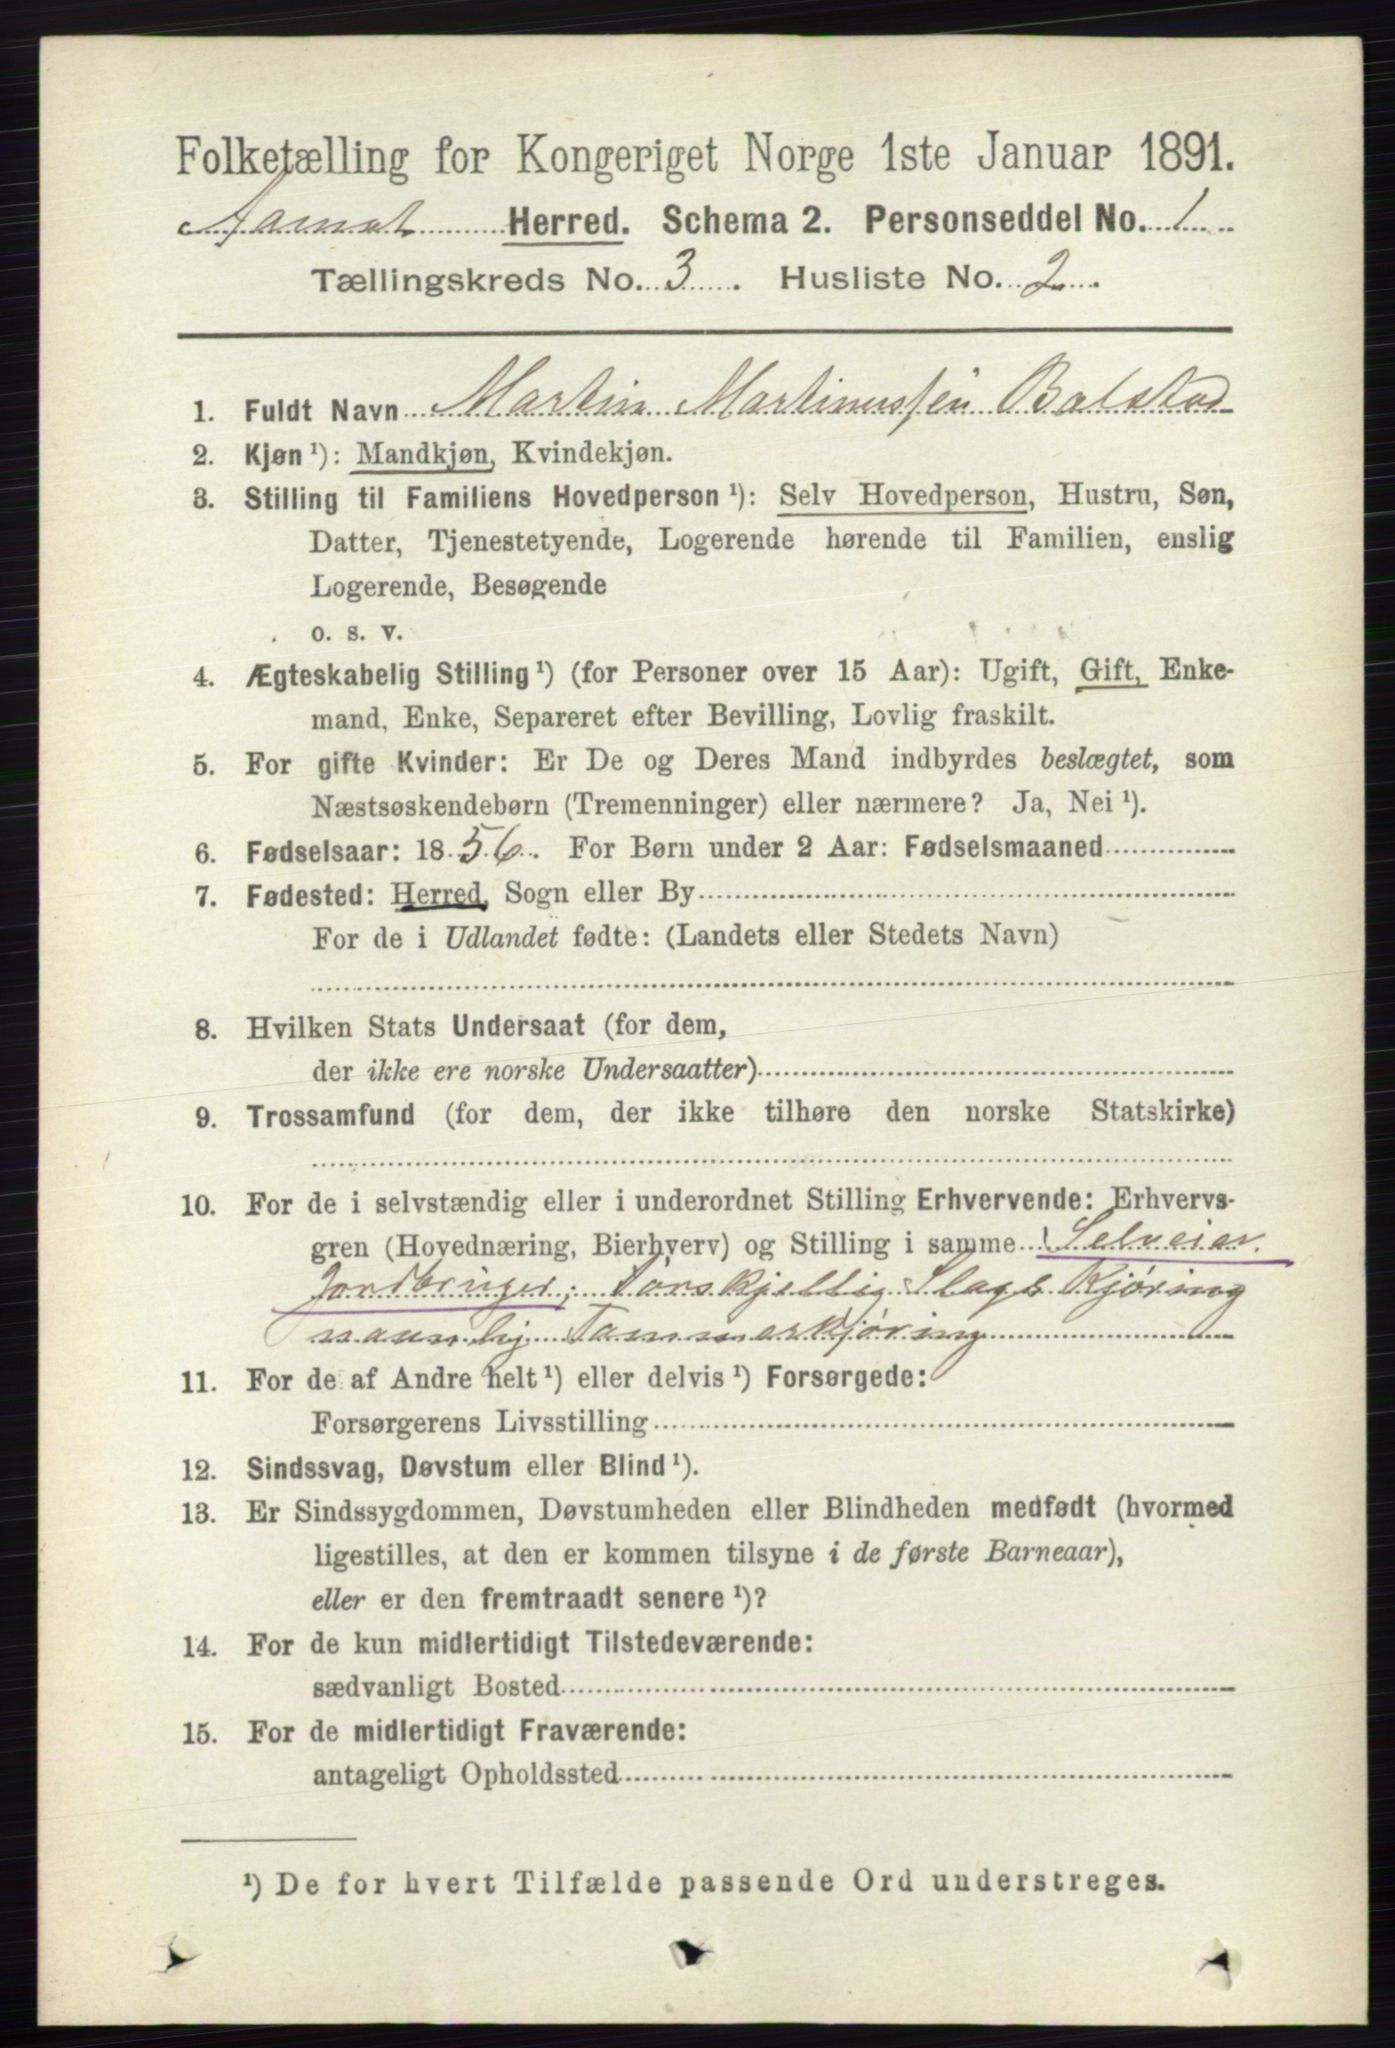 Folketælling for Kongeriget Norge 1ste Januar 1891.
Aamot Herred. Schema 2. Personseddel No. 1
Tællingskreds No. 3. Husliste No. 2.
1. Fuldt Navn Martin Martinussen Balstad
2. Kjøn ¹): Mandkjøn, Kvindekjøn.
3. Stilling til Familiens Hovedperson ¹): Selv Hovedperson, Hustru, Søn,
Datter, Tjenestetyende, Logerende hørende til Familien, enslig
Logerende, Besøgende
o. s. v.
4. Ægteskabelig Stilling ¹) (for Personer over 15 Aar): Ugift, Gift, Enke-
mand, Enke, Separeret efter Bevilling, Lovlig fraskilt.
5. For gifte Kvinder: Er De og Deres Mand indbyrdes beslægtet, som
Næstsøskendebørn (Tremenninger) eller nærmere? Ja, Nei ¹).
6. Fødselsaar: 1856. For Børn under 2 Aar: Fødselsmaaned
7. Fødested: Herred, Sogn eller By
For de i Udlandet fødte: (Landets eller Stedets Navn)
8. Hvilken Stats Undersaat (for dem,
der ikke ere norske Undersaatter)
9. Trossamfund (for dem, der ikke tilhøre den norske Statskirke)
10. For de i selvstændig eller i underordnet Stilling Erhvervende: Erhvervs-
gren (Hovednæring, Bierhverv) og Stilling i samme Selveier
Jordbruger; Forskjellig Slags Kjøring
navnlig Tømmerkjøring
11. For de af Andre helt ¹) eller delvis ¹) Forsørgede:
Forsørgerens Livsstilling
12. Sindssvag, Døvstum eller Blind ¹).
13. Er Sindssygdommen, Døvstumheden eller Blindheden medfødt (hvormed
ligestilles, at den er kommen tilsyne i de første Barneaar),
eller er den fremtraadt senere ¹)?
14. For de kun midlertidigt Tilstedeværende:
sædvanligt Bosted
15. For de midlertidigt Fraværende:
antageligt Opholdssted
¹) De for hvert Tilfælde passende Ord understreges.